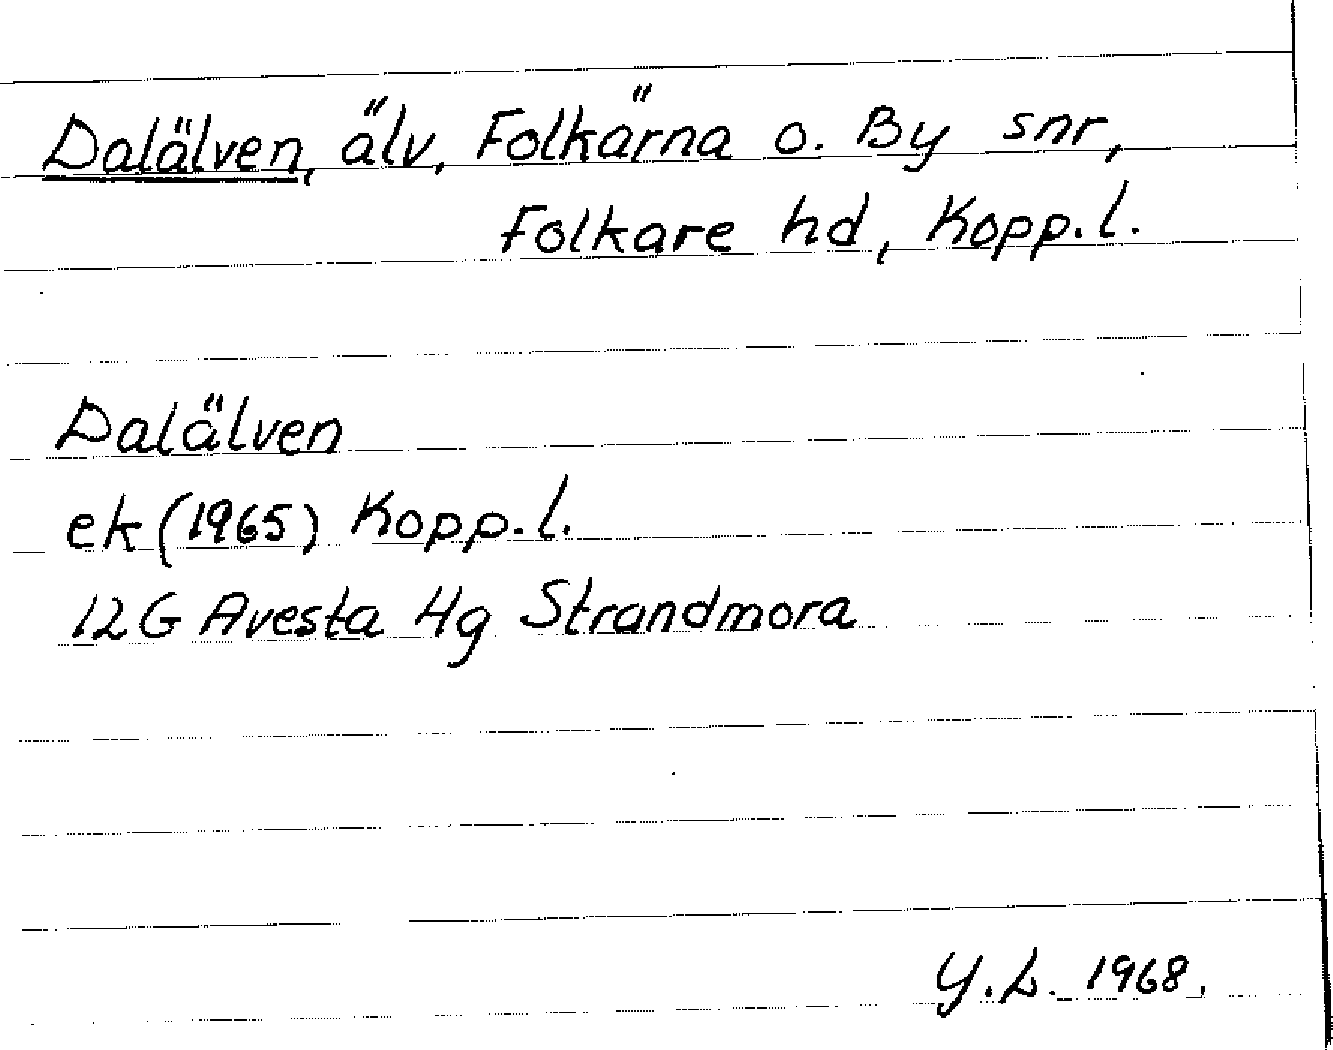 Dalälven, älv, Folkärna o. By snr,
Folkare hd, Kopp.l.
Dalälven
ek (1965) Kopp.l.
12G Avesta 4g Strandmora
Y.L. 1968.